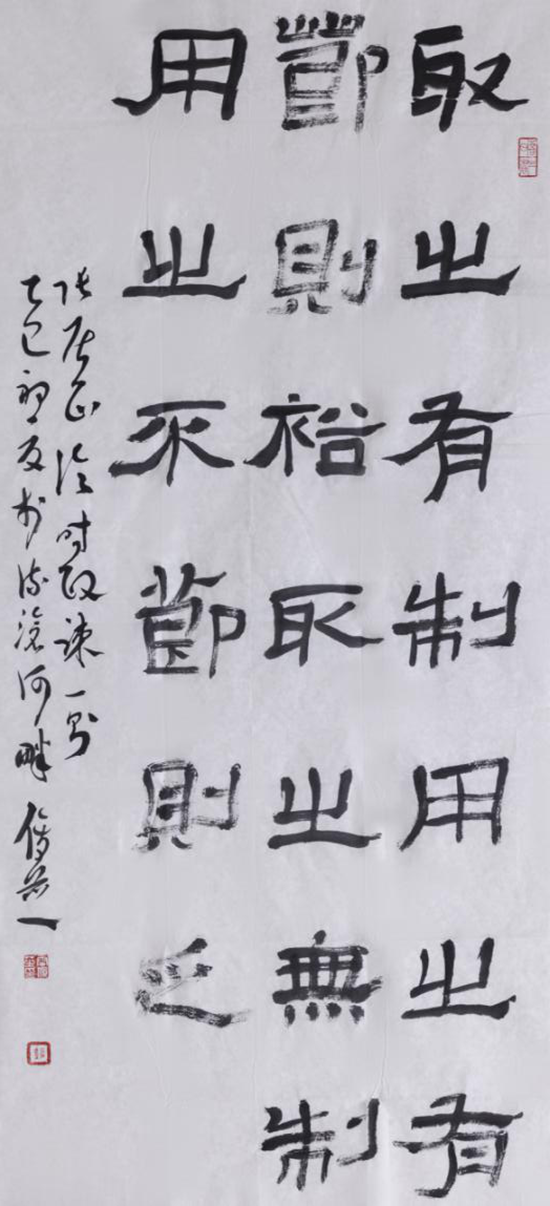 取之有制用之有
節則裕取之無制
用之不節則乏
張居正論時政疏一則
乙巳初夏於流滄河畔